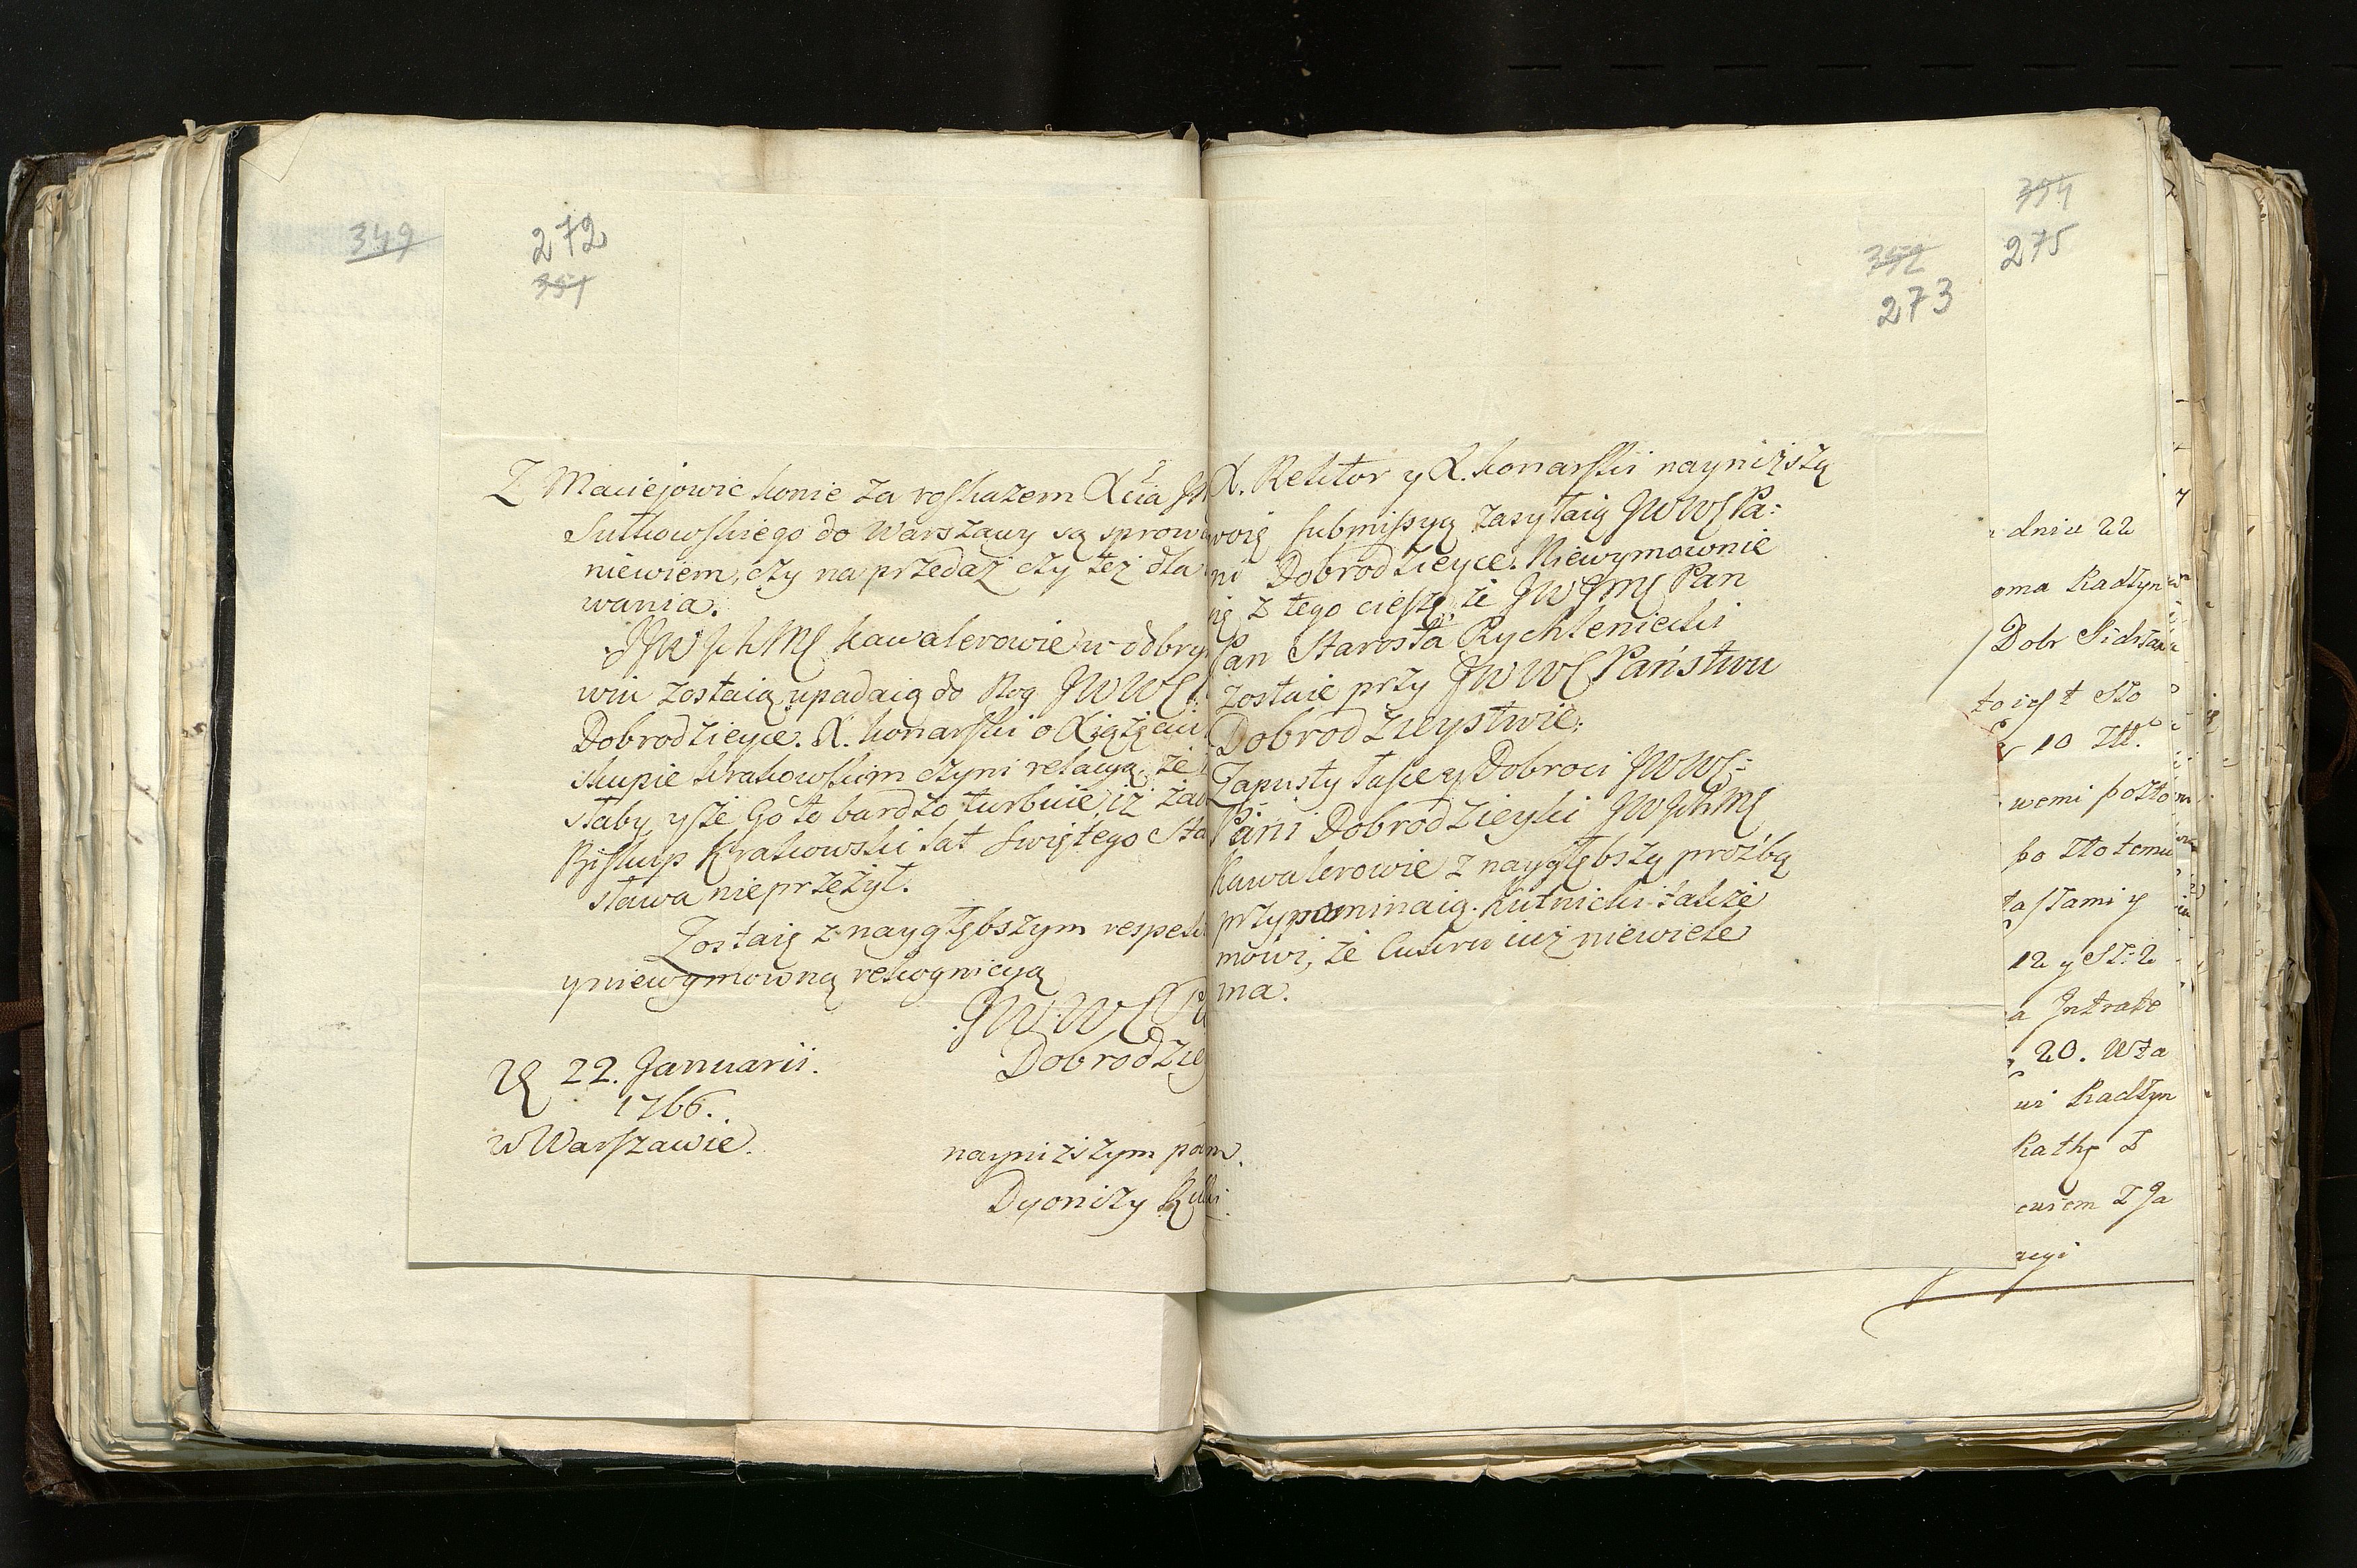 349
272
351
Z Maciejowic konie za roskazem Xcia
Sułkowskiego do Warszawy są
niewiem, czy na przedaż czy też dla
wania.
JJWJchMC kawalerowie w dobrym
wiu zostaią, upadaią do Nog JWWC
Dobrodzieyce. X. Konarski o Xiążęciu
skupie Krakowskim czyni relacyą, że
słaby y że Go to bardzo turbuie, iż żaden
Biskup Krakowski lat Świętego Sta
sława nieprzeżył.
Zostaię z naygłębszym respek
y niewymowną rekognicyą
JW.WC
Dobrodziey
D 22. Januarii.
1766.
w Warszawie.
nayniższym
Dyonizy
352
273
X. Rektor y X. Konarski nayniższą
swoię submissyą zasyłaią JWWCPa:
ni Dobrodzieyce. Niewymownie
się z tego cieszę, że JWJMC Pan
Pan Starosta Rychlenicki
zostaie przy JWWC Państwu
Dobrodzieystwie.
Zapusty łasce y Dobroci JWWC:
Pani Dobrodzieyki JWJchMC
Kawalerowie z naygłębszą proźbą
przypominaią. Kutnicki także
mowi, że Cukru iuż niewiele
ma.
354
275
dniu 22
oma Radzyn
Dobr Sidsta
to iest Sto
10 Zlł.
wemi po zło
po złotemu
łastami y
12 y St: 2
a Intrate
20. Wza
ui Radzyn
Rathę Z
cusem Z Ja
acyi